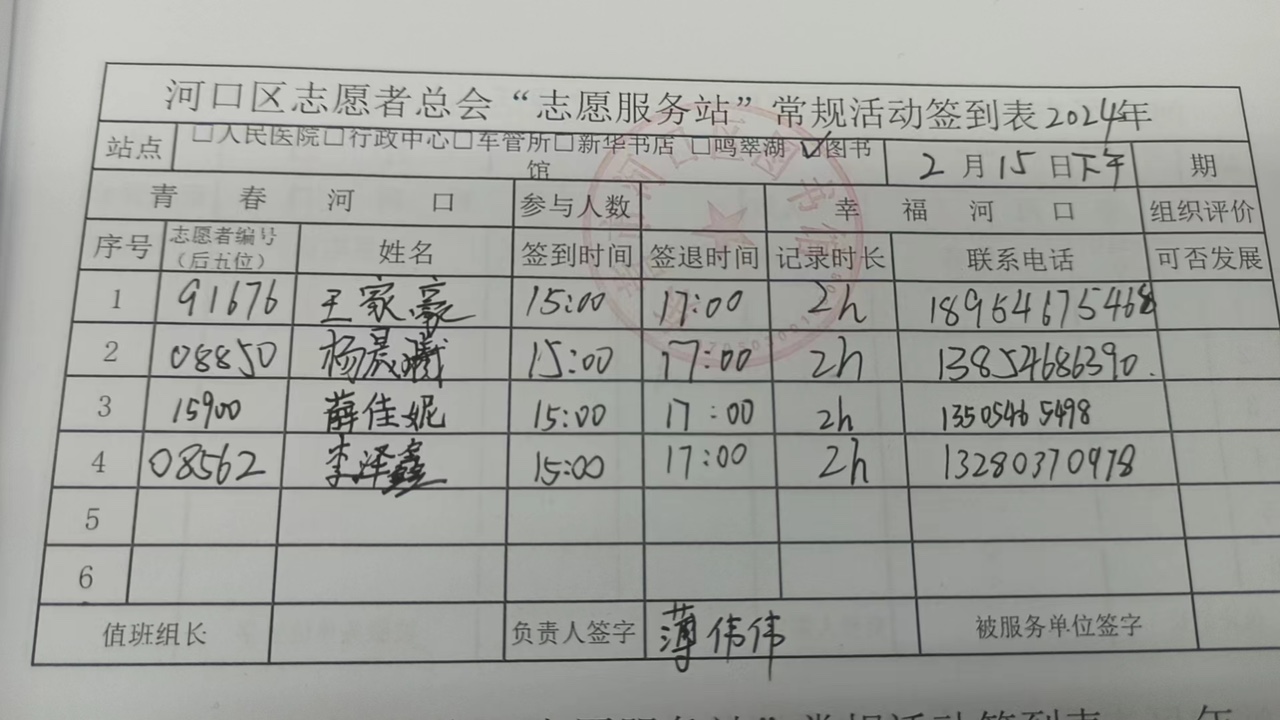 河口区志愿者总会“志愿服务站”常规活动签到表2024年
站点 □人民医院□行政中心□车管所□新华书店 □鸣翠湖 ☑图书馆 2月15日下午 期
青春河口 参与人数 幸福河口 组织评价
序号 志愿者编号（后五位） 姓名 签到时间 签退时间 记录时长 联系电话 可否发展
1 91676 王家豪 15:00 17:00 2h 18954675468
2 08850 杨晨曦 15:00 17:00 2h 13854686390.
3 15900 薛佳妮 15:00 17:00 2h 13505465498
4 08562 李泽鑫 15:00 17:00 2h 13280370978
5
6
值班组长 负责人签字 薄伟伟 被服务单位签字
志愿服务站”常规活动签到表 年